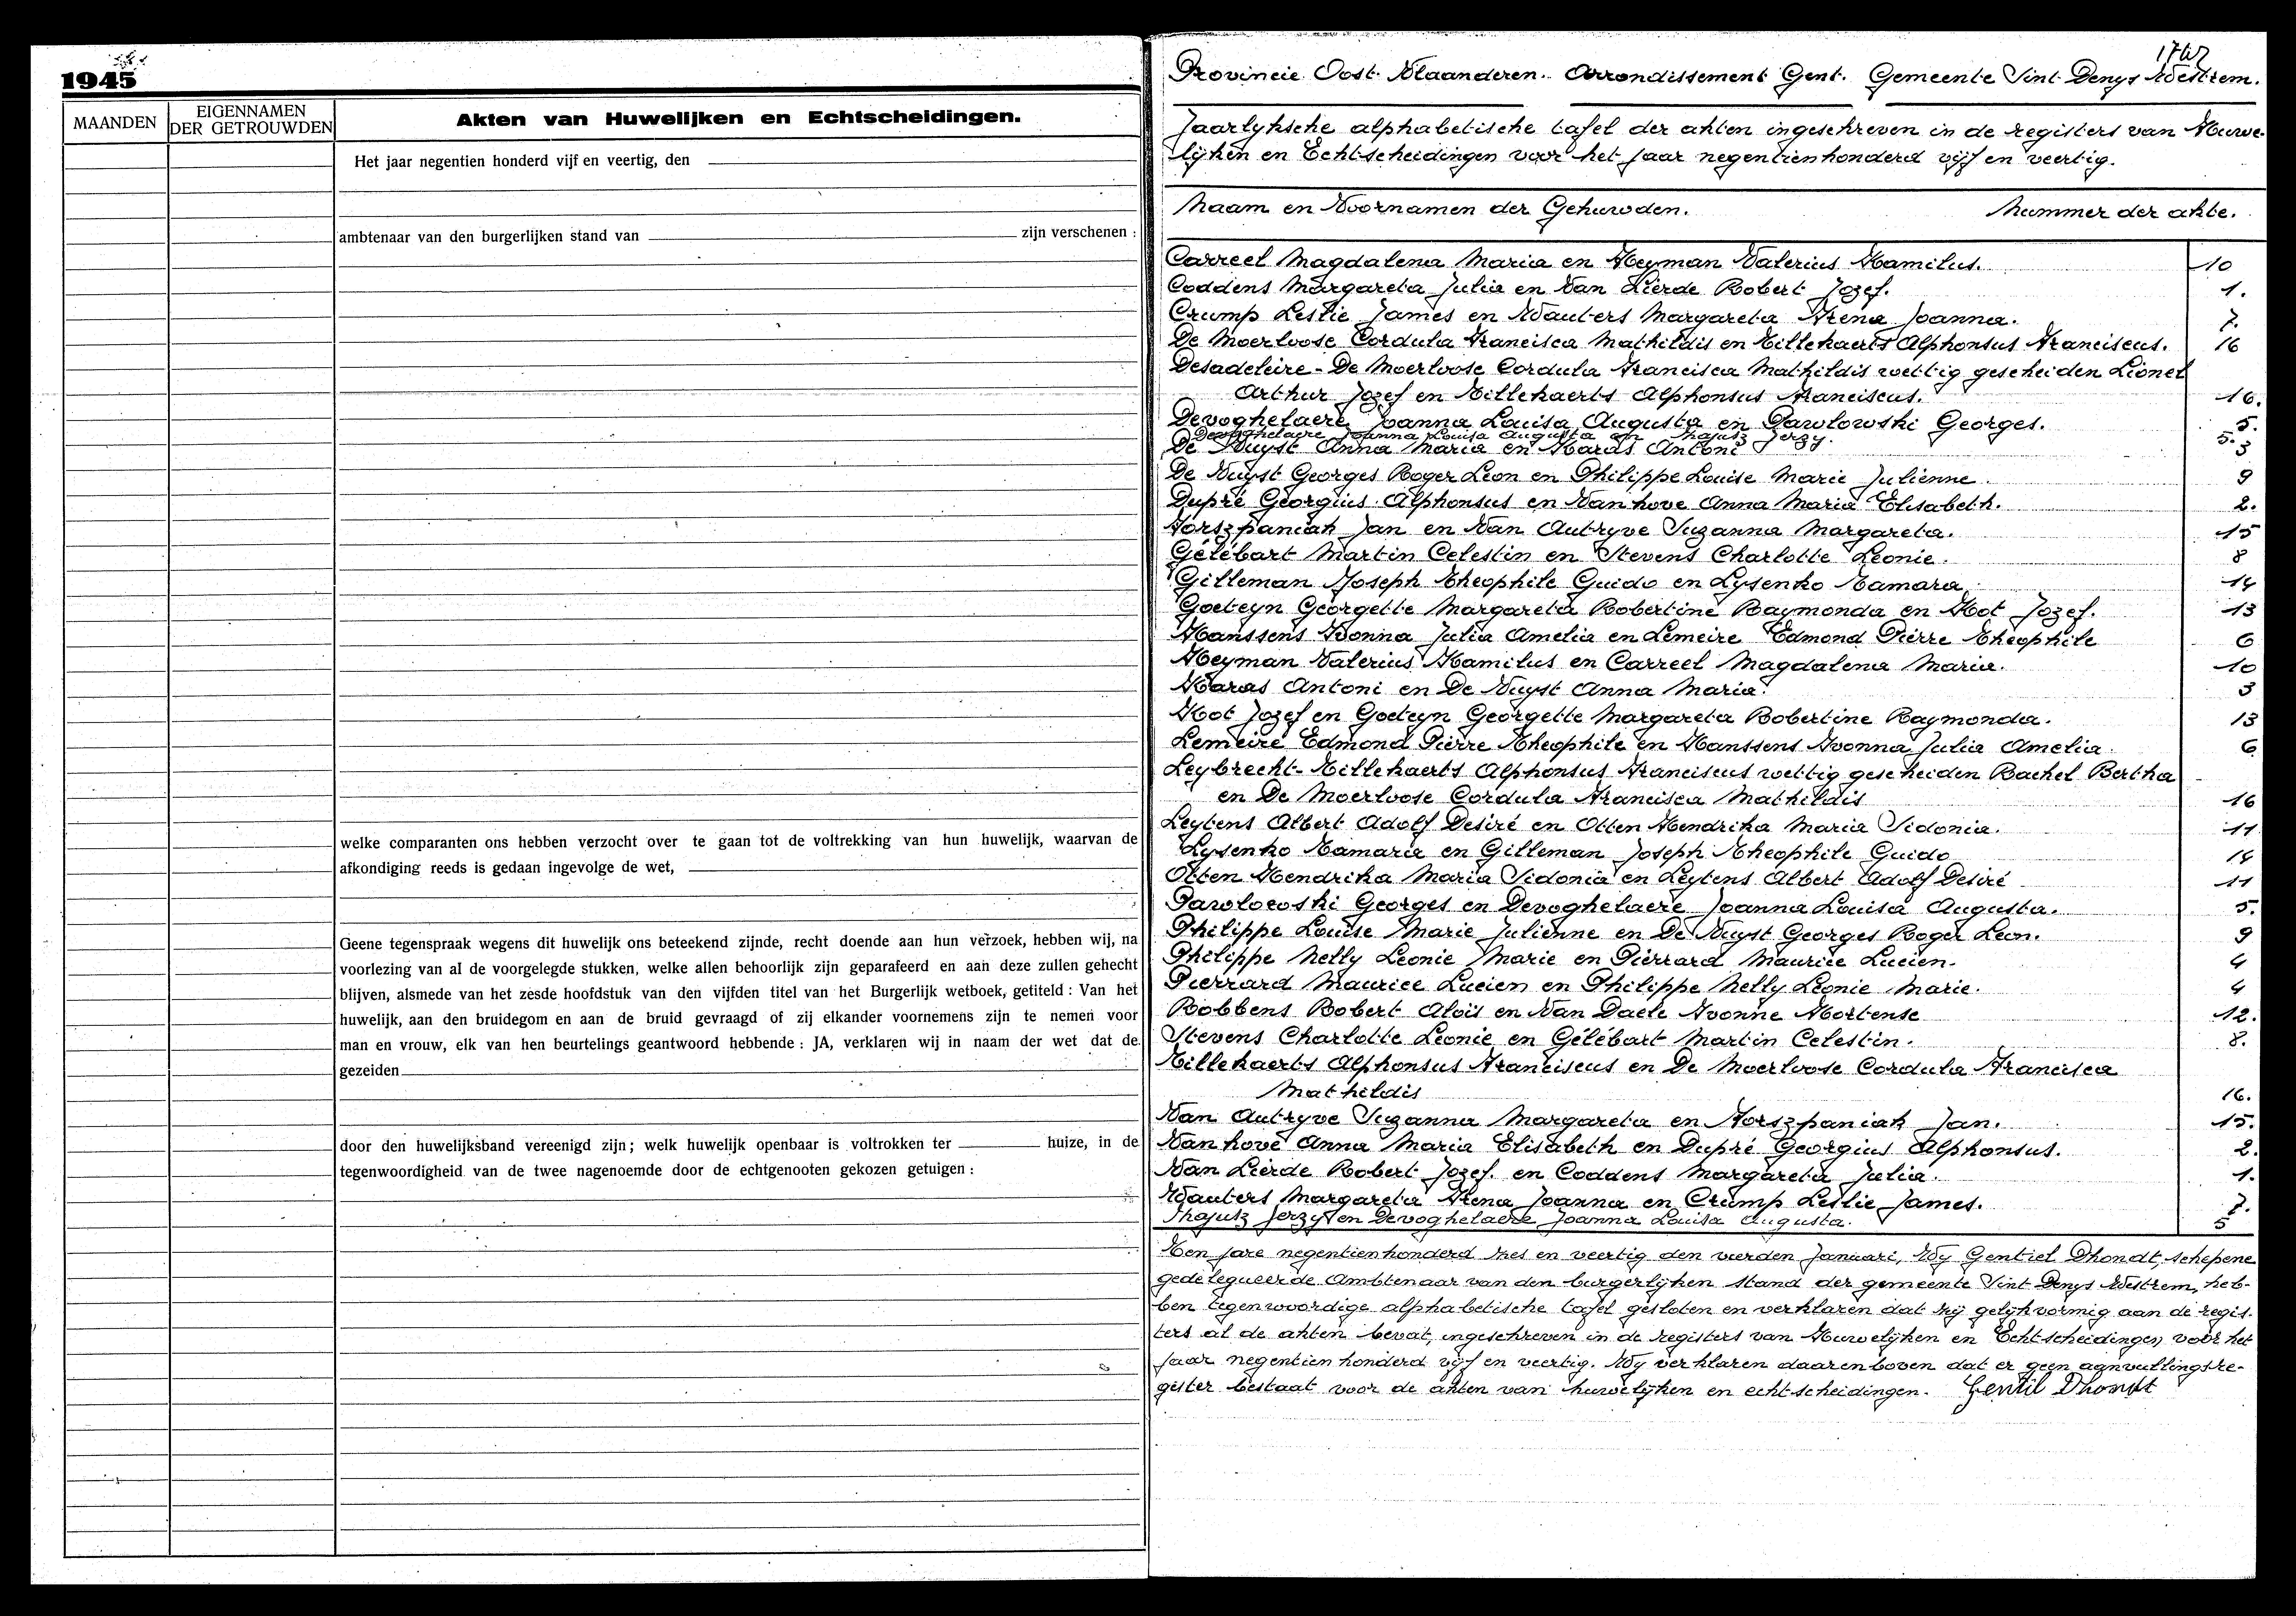 1945
MAANDEN
EIGENNAMEN
DER GETROUWDEN
Akten van Huwelijken en Echtscheidingen.
Het jaar negentien honderd vijf en veertig, den
ambtenaar van den burgerlijken stand van zijn verschenen :
welke comparanten ons hebben verzocht over te gaan tot de voltrekking van hun huwelijk, waarvan de
afkondiging reeds is gedaan ingevolge de wet,
Geene tegenspraak wegens dit huwelijk ons beteekend zijnde, recht doende aan hun verzoek, hebben wij, na
voorlezing van al de voorgelegde stukken, welke allen behoorlijk zijn geparafeerd en aan deze zullen gehecht
blijven, alsmede van het zesde hoofdstuk van den vijfden titel van het Burgerlijk wetboek, getiteld : Van het
huwelijk, aan den bruidegom en aan de bruid gevraagd of zij elkander voornemens zijn te nemen voor
man en vrouw, elk van hen beurtelings geantwoord hebbende : JA, verklaren wij in naam der wet dat de
gezeiden
door den huwelijksband vereenigd zijn ; welk huwelijk openbaar is voltrokken ter huize, in de
tegenwoordigheid van de twee nagenoemde door de echtgenooten gekozen getuigen :
Provincie Oost Vlaanderen. Arrondissement Gent. Gemeente Sint Denys Westrem.
Jaarlyksche alphabetische tafel der akten ingeschreven in de registers van Huwe-
lijken en Echtscheidingen voor het jaar negentienhonderd vijf en veertig.
Naam en Voornamen der Gehuwden. Nummer der akte.
Carreel Magdalena Maria en Heyman Valerius Kamilus. 10
Coddens Margareta Julia en Van Lierde Robert Jozef. 1.
Crump Leslie James en Wauters Margareta Irena Joanna. 7.
De Moerloose Cordula Francisca Mathildis en Tillekaerts Alphonsus Franciscus. 16
Desadeleire - De Moerloose Cordula Francisca Mathildis wettig gescheiden Lionel
Arthur Jozef en Tillekaerts Alphonsus Franciscus. 16.
Devoghelaere Joanna Louisa Augusta en Pawlowski Georges. 5.
Devoghelaere Joanna Louisa Augusta en Thajusz Jerzy. 5.
De Nuyst Anna Maria en Karas Antoni 3
De Nuyst Georges Roger Leon en Philippe Louise Marie Julienne. 9
Dupré Georgius Alphonsus en Vanhove Anna Maria Elisabeth. 2.
Forszpaniak Jan en Van Autryve Suzanna Margareta. 15
Gélébart Martin Celestin en Stevens Charlotte Leonie. 8
Gilleman Joseph Theophile Guido en Lysenko Tamara 14
Goeteyn Georgette Margareta Robertine Raymonda en Kot Jozef. 13
Hanssens Ivonna Julia Amelia en Lemeire Edmond Pierre Theophile 6
Heyman Valerius Kamilus en Carreel Magdalena Maria. 10
Karas Antoni en De Nuyst Anna Maria. 3
Kot Jozef en Goeteyn Georgette Margareta Robertine Raymonda. 13
Lemeire Edmond Pierre Theophile en Hanssens Ivonna Julia Amelia. 6
Leybrecht - Tillekaerts Alphonsus Franciscus wettig gescheiden Rachel Bertha
en De Moerloose Cordula Francisca Mathildis 16
Leytens Albert Adolf Desiré en Otten Hendrika Maria Sidonia. 11
Lysenko Tamara en Gilleman Joseph Theophile Guido 14
Otten Hendrika Maria Sidonia en Leytens Albert Adolf Desiré 11
Pawlowski Georges en Devoghelaere Joanna Louisa Augusta. 5.
Philippe Louise Marie Julienne en De Nuyst Georges Roger Leon. 9
Philippe Nelly Leonie Marie en Pierrard Maurice Lucien. 4
Pierrard Maurice Lucien en Philippe Nelly Leonie Marie. 4
Robbens Robert Aloïs en Van Daele Ivonne Hortense 12.
Stevens Charlotte Leonie en Gélébart Martin Celestin. 8.
Tillekaerts Alphonsus Franciscus en De Moerloose Cordula Francisca
Mathildis 16.
Van Autryve Suzanna Margareta en Forszpaniak Jan. 15.
Vanhove Anna Maria Elisabeth en Dupré Georgius Alphonsus. 2.
Van Lierde Robert Jozef. en Coddens Margareta Julia. 1.
Wauters Margareta Irena Joanna en Crump Leslie James. 7.
Thajusz Jerzy en Devoghelaere Joanna Louisa Augusta. 5
Ten jare negentienhonderd zes en veertig den vierden Januari, Wy Gentiel Dhondt, schepene
gedelegueerde Ambtenaar van den burgerlijken stand der gemeente Sint Denys Westrem, heb-
ben tegenwoordige alphabetische tafel gesloten en verklaren dat zij gelijkvormig aan de regis-
ters al de akten bevat, ingeschreven in de registers van Huwelijken en Echtscheidingen, voor het
jaar negentien honderd vijf en veertig. Wy verklaren daarenboven dat er geen aanvullingsre-
gister bestaat voor de akten van huwelijken en echtscheidingen. Gentil Dhondt